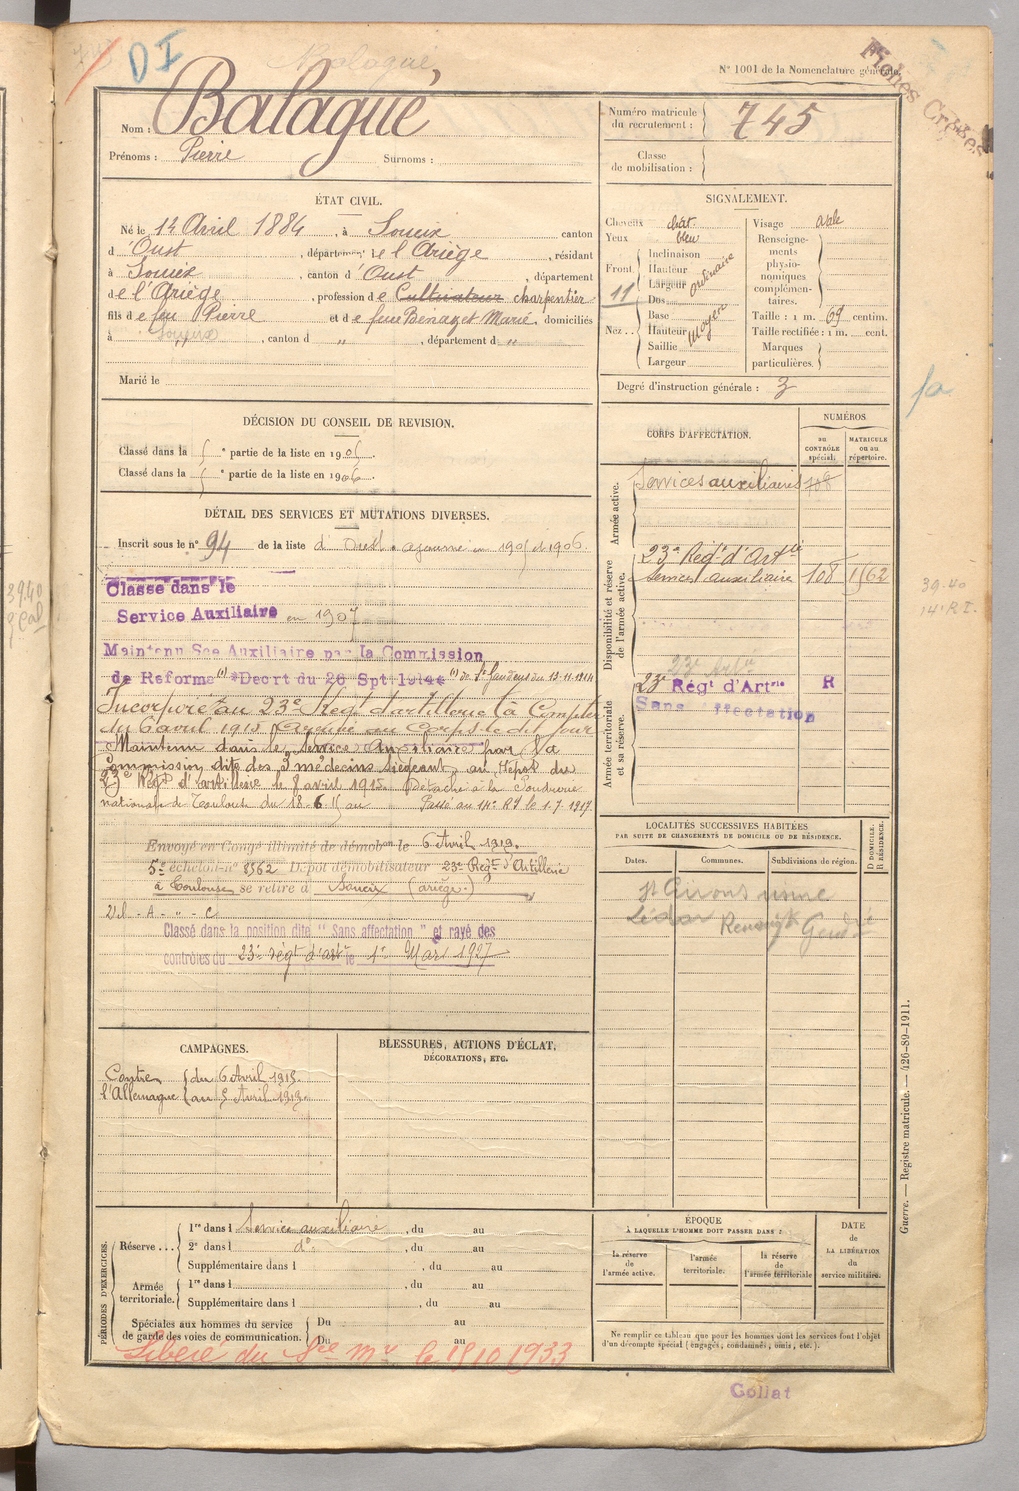 DI
Balagué
N° 1001 de la Nomenclature générale.
Fiches Croises
Nom : Balagué
Prénoms : Pierre Surnoms :
Numéro matricule du recrutement : 745
Classe de mobilisation :
ÉTAT CIVIL.
Né le 14 Avril 1884, à Soueix canton
d'Oust, département de l'Ariège, résidant
à Soueix, canton d'Oust, département
de l'Ariège, profession de Cultivateur charpentier
fils de feu Pierre et de feue Benazet Marie, domiciliés
à, canton d ", département d "
Marié le
SIGNALEMENT.
Cheveux chât.
Yeux bleu
Front
Inclinaison
Hauteur
Largeur
ordinaire
11
Nez
Dos
Base
Hauteur
Saillie
Largeur
moyen
Visage ovale
Renseignements physionomiques complémentaires.
Taille : 1 m. 69 centim.
Taille rectifiée : 1 m. cent.
Marques particulières.
Degré d'instruction générale : 3
DÉCISION DU CONSEIL DE REVISION.
Classé dans la e partie de la liste en 1905.
Classé dans la e partie de la liste en 1906.
DÉTAIL DES SERVICES ET MUTATIONS DIVERSES.
Inscrit sous le n° 94 de la liste d'Oust - ajourné en 1905 et 1906.
Classé dans le
Service Auxiliaire en 1907
Maintenu Sce Auxiliaire par la Commission
de Reforme (1) Decrt du 26 Spt 1914 (1) de St Gaudens du 13-11-1914
Incorporé au 23e Régt d'artillerie à compter
du 6 avril 1915 Arrivé au corps le dit jour
Maintenu dans le service Auxiliaire par la
Commission dite des 3 médecins siégeant au Dépôt du
23e Régt d'artillerie le 8 avril 1915. Détaché à la Poudrerie
nationale de Toulouse du 18-6-15 au Passé au 14e RI le 1.7.1917
Envoyé en Congé illimité de démobon le 6 Avril 1919.
5e échelon n° 8562 Dépôt démobilisateur 23e Régt d'Artillerie
à Toulouse se retire à Soueix (ariège)
Classé dans la position dite "Sans affectation" et rayé des
contrôles du 23e régt d'artie le 1er Mars 1927
CORPS D'AFFECTATION.
NUMÉROS
au CONTRÔLE spécial.
MATRICULE ou au répertoire.
Armée active.
Services auxiliaires 108
Disponibilité et réserve de l'armée active.
23e Régt d'Artie
services auxiliaire 108 1562
Armée territoriale et sa réserve.
23e Artie
23e Régt d'Artrie R
Sans affectation
39.40
14e R.I.
LOCALITÉS SUCCESSIVES HABITÉES
PAR SUITE DE CHANGEMENTS DE DOMICILE OU DE RÉSIDENCE.
Dates. Communes. Subdivisions de région. D DOMICILE. R RÉSIDENCE.
St Girons
CAMPAGNES.
Contre l'Allemagne
du 6 Avril 1915.
au 5 Avril 1919.
BLESSURES, ACTIONS D'ÉCLAT, DÉCORATIONS, ETC.
PÉRIODES D'EXERCICES.
Réserve ...
1re dans l Service auxiliaire, du au
2e dans l d°, du au
Supplémentaire dans l, du au
Armée territoriale.
1re dans l, du au
Supplémentaire dans l, du au
Spéciales aux hommes du service de garde des voies de communication.
Du au
Du au
Libéré du Sce mre le 15 10 1933
ÉPOQUE
À LAQUELLE L'HOMME DOIT PASSER DANS :
la réserve de l'armée active.
l'armée territoriale.
la réserve de l'armée territoriale
DATE DE LA LIBÉRATION du service militaire.
Ne remplir ce tableau que pour les hommes dont les services font l'objet
d'un décompte spécial (engagés ; condamnés ; omis ; etc.).
Goliat
Guerre. — Registre matricule. — 426-89-1911.